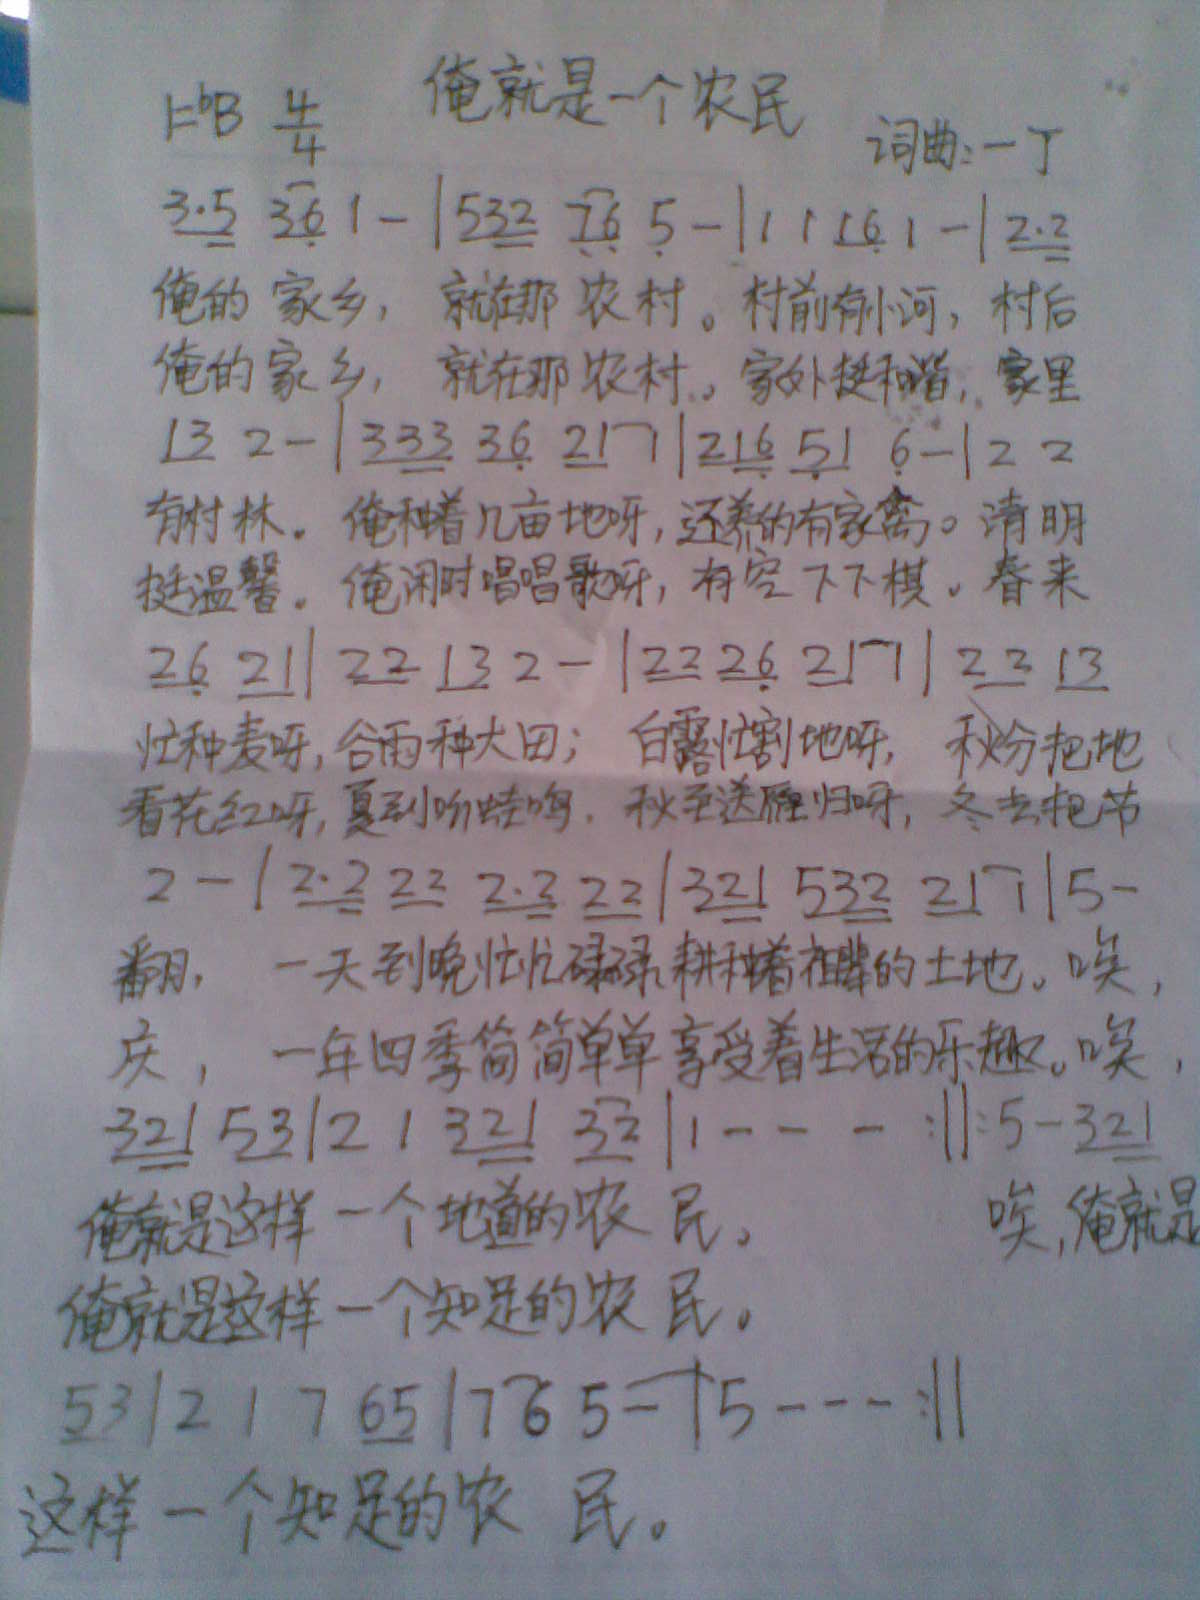 俺就是一个农民
1=ᵇB 4/4
词曲:一丁
3·5 36 1 - | 532 76 5 - | 1 1 16 1 - | 2·2
俺的家乡, 就在那农村。村前有小河, 村后
俺的家乡, 就在那农村。家外挺和谐, 家里
13 2 - | 333 36 21 1 | 216 51 6 - | 2 2
有村林。俺种着几亩地呀, 还养的有家禽。清明
挺温馨。俺闲时唱唱歌呀, 有空下下棋。春来
26 21 | 22 13 2 - | 22 26 21 1 | 22 13
忙种麦呀, 谷雨种大田; 白露忙割地呀, 秋分把地
看花红呀, 夏到听蛙鸣. 秋至送雁归呀, 冬去把节
2 - | 2·2 22 2·2 22 | 321 532 21 1 | 5 -
翻, 一天到晚忙忙碌碌, 耕种着祖辈的土地。唉,
庆, 一年四季简简单单享受着生活的乐趣。唉,
321 53 | 2 1 321 32 | 1 - - - :||: 5 - 321
俺就是这样一个地道的农民。 唉, 俺就是
俺就是这样一个知足的农民。
53 | 2 1 7 65 | 7 6 5 - | 5 - - - :||
这样一个知足的农民。